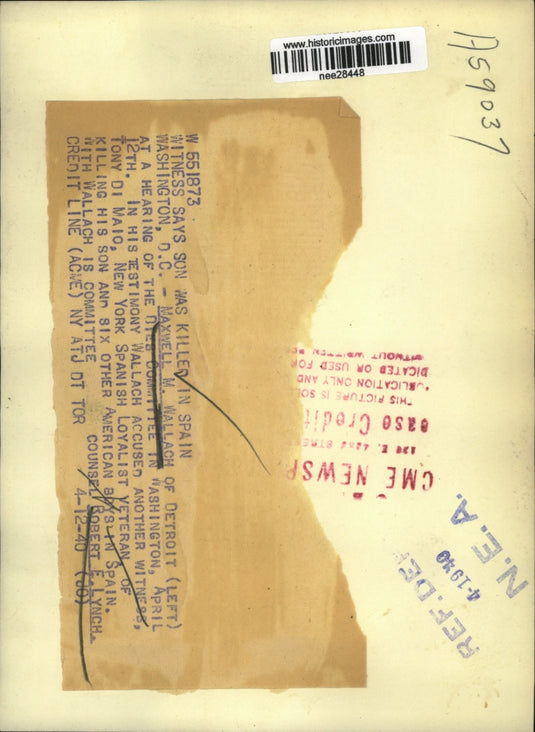 www.historicimages.com
nee28448
A59037
W 551873
WITNESS SAYS SON WAS KILLED IN SPAIN
WASHINGTON, D.C. - MAXWELL M. WALLACH OF DETROIT (LEFT)
AT A HEARING OF THE DIES COMMITTEE IN WASHINGTON, APRIL
12TH. IN HIS TESTIMONY WALLACH ACCUSED ANOTHER WITNESS,
TONY DI MAIO, NEW YORK SPANISH LOYALIST VETERAN, OF
KILLING HIS SON AND SIX OTHER AMERICAN BOYS IN SPAIN.
WITH WALLACH IS COMMITTEE COUNSEL ROBERT E. LYNCH.
CREDIT LINE (ACME) NY ATJ DT TOR 4-12-40 (JO)
CME NEWSP
42nd STREE
ease Credit
THIS PICTURE IS SOL
UBLICATION ONLY AND
DICATED OR USED FOR
WITHOUT WRITTEN
N.E.A.
4-1940
REF. DE